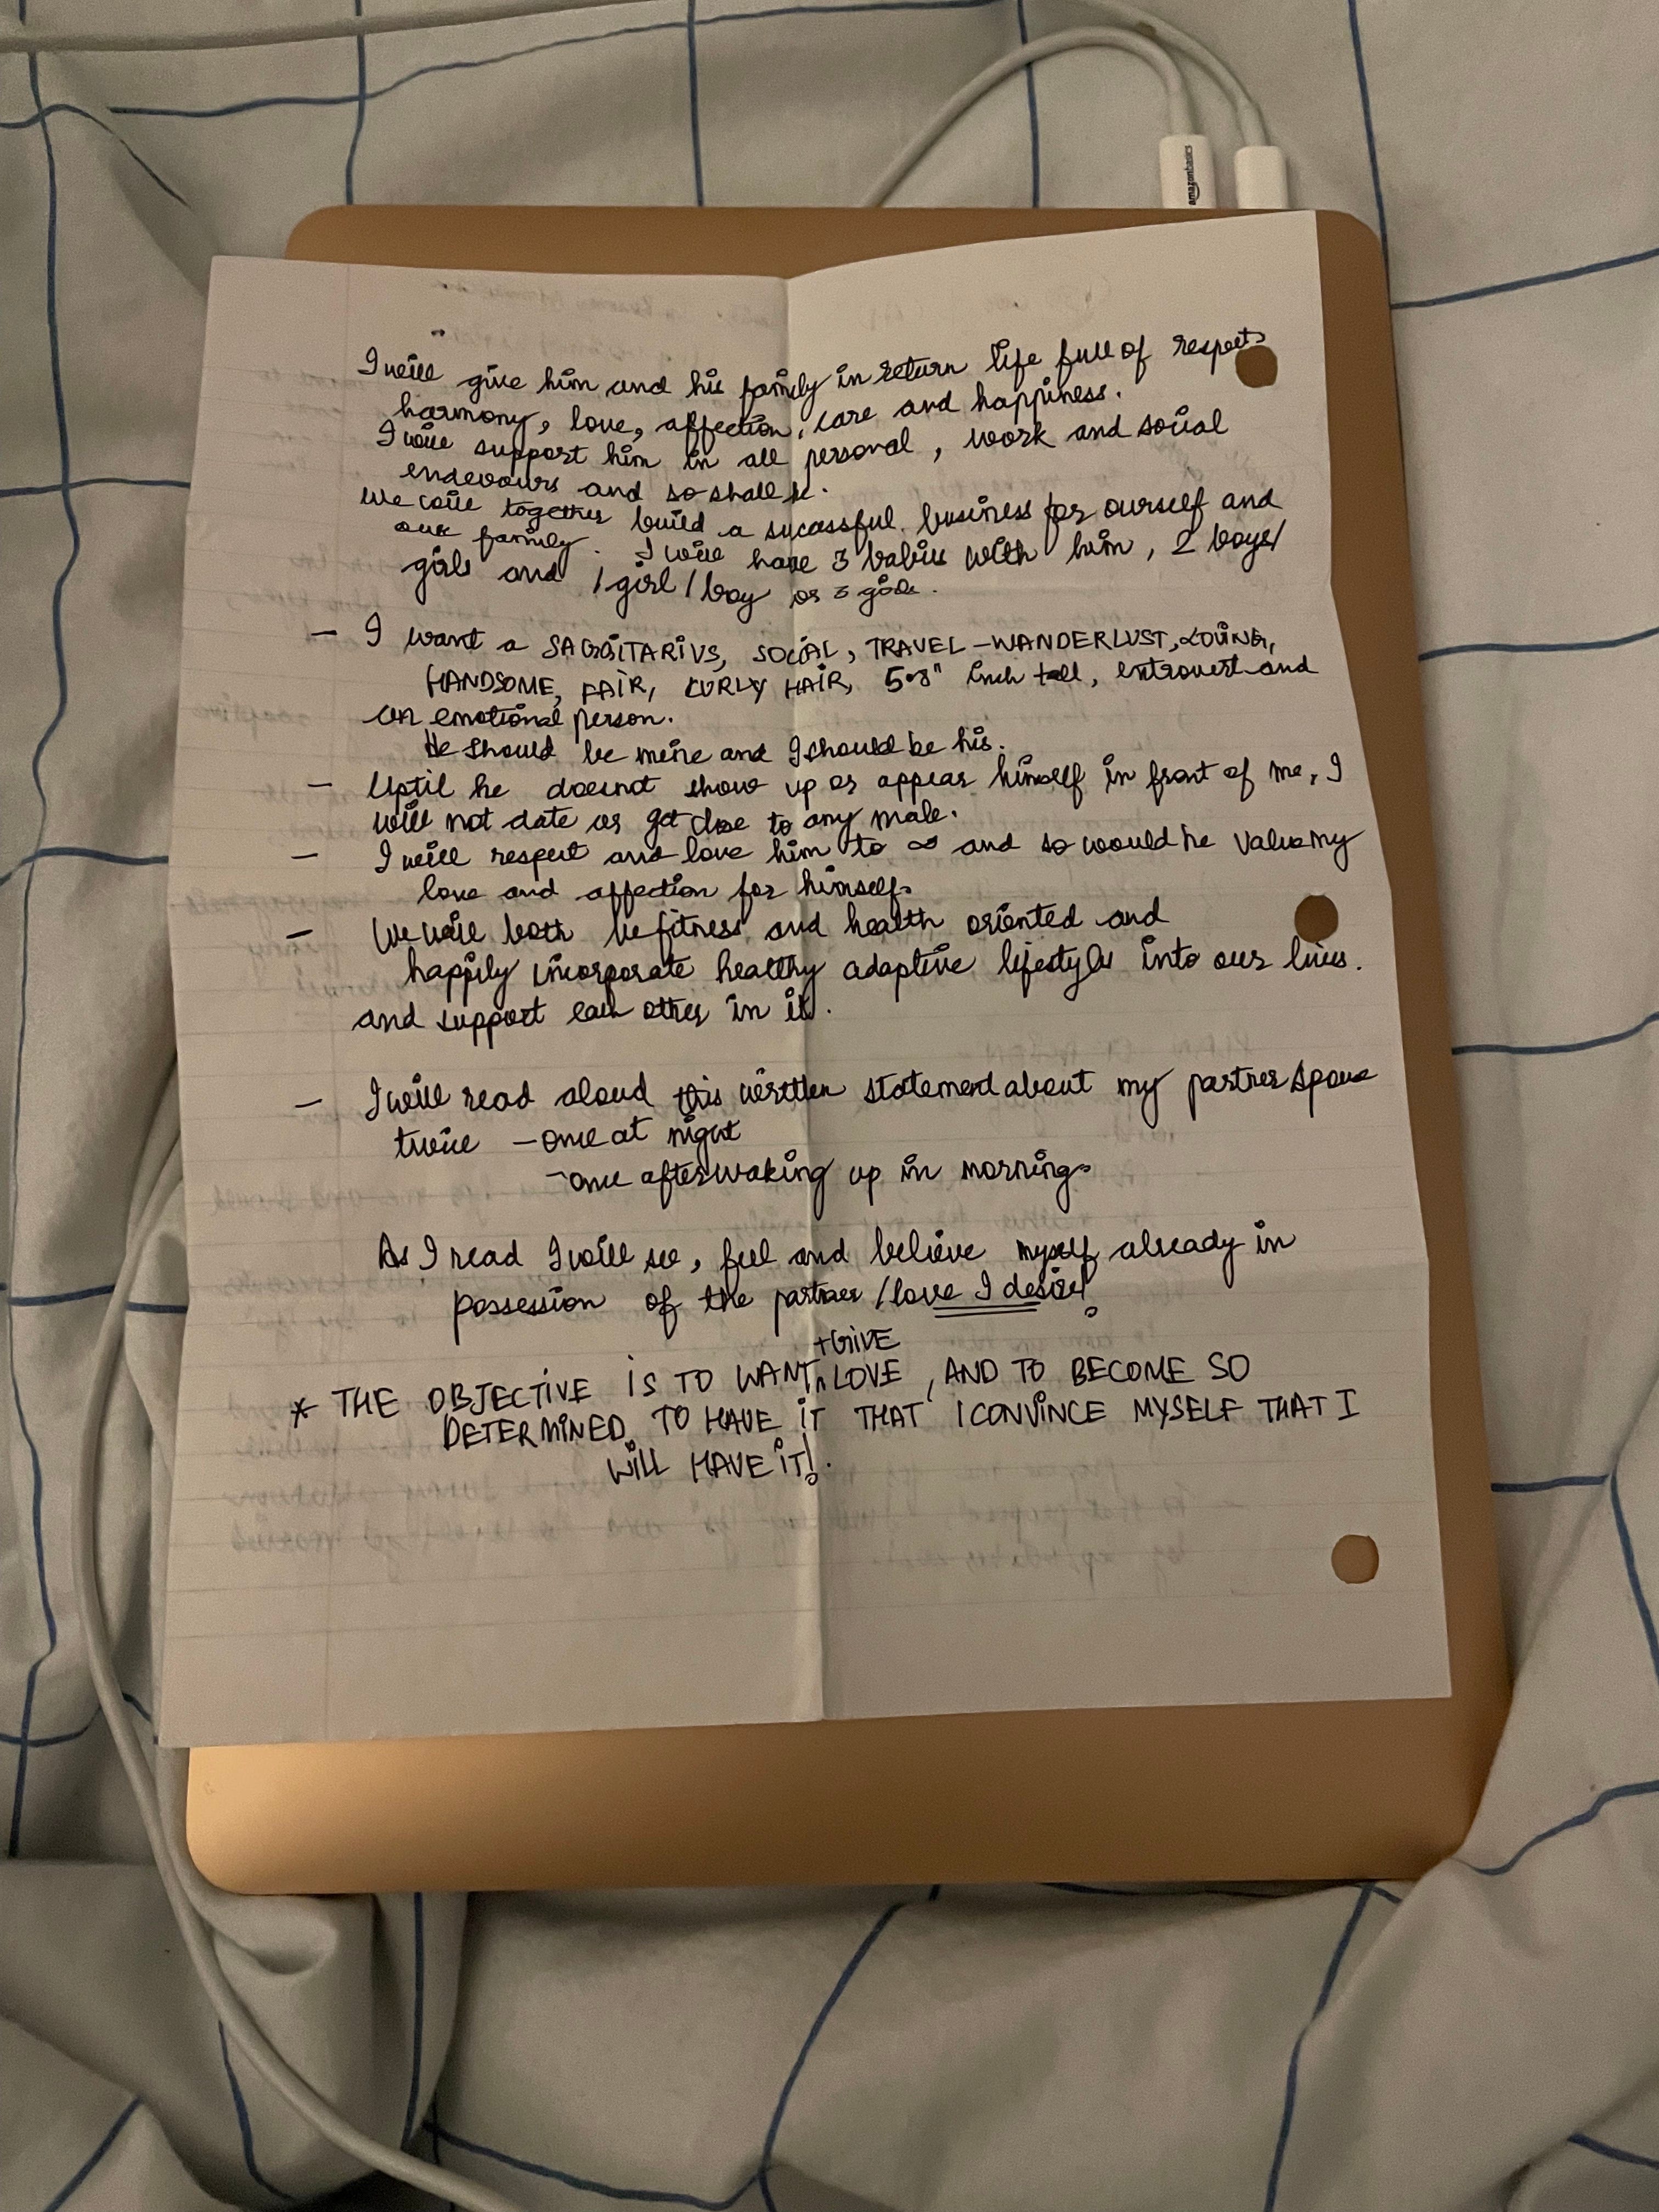 amazonbasics
I will give him and his family in return life full of respect,
harmony, love, affection, care and happiness.
I will support him in all personal, work and social
endevours and so shall he.
We will together build a sucassful business for ourself and
our family. I will have 3 babies with him, 2 boys/
girls and 1 girl/boy or 3 girls.
- I want a SAGGITARIUS, SOCIAL, TRAVEL-WANDERLUST, LOVING,
HANDSOME, FAIR, CURLY HAIR, 5'8" inch tall, extrovert and
an emotional person.
He should be mine and I should be his.
- Uptil he doesnot show up or appear himself in front of me, I
will not date or get close to any male.
- I will respect and love him to ∞ and so would he value my
love and affection for himself.
- We will both be fitness and health oriented and
happily incorporate healthy adaptive lifestyles into our lives.
and support each other in it.
- I will read aloud this written statement about my partner spouse
twice - once at night
- once after waking up in morning.
As I read I will see, feel and believe myself already in
possession of the partner/love I desire!
+GIVE
* THE OBJECTIVE IS TO WANT LOVE, AND TO BECOME SO
DETERMINED TO HAVE IT THAT I CONVINCE MYSELF THAT I
WILL HAVE IT!.